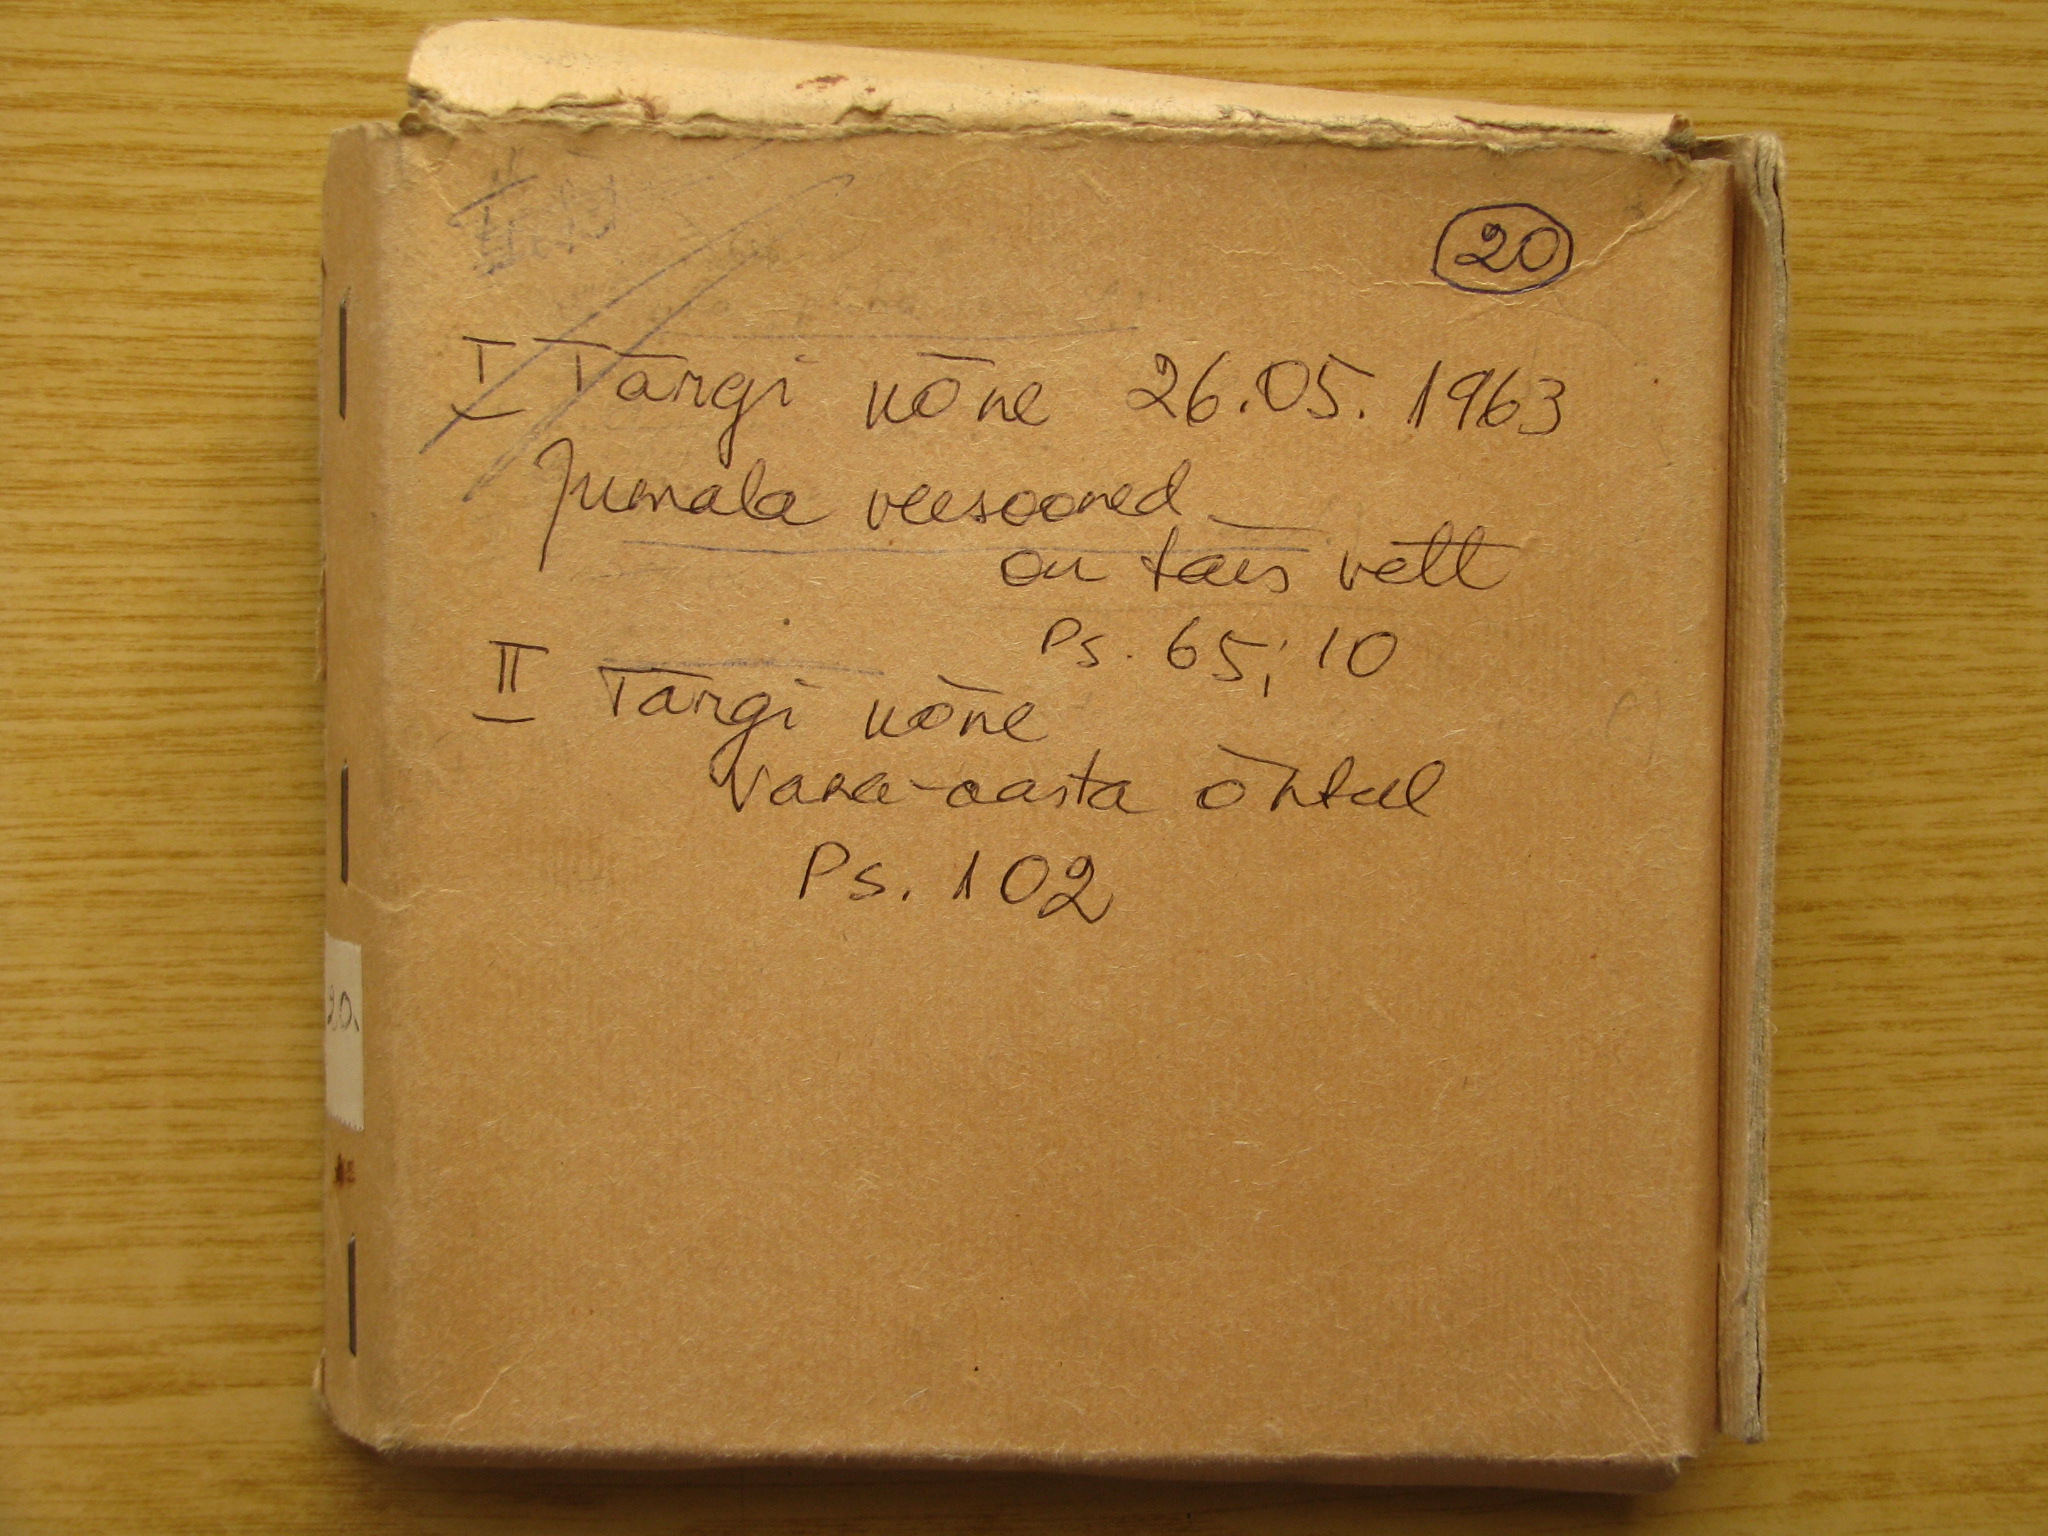 20
I Tärgi kõne 26.05.1963
Jumala veesooned
on täis vett
Ps. 65; 10
II Tärgi kõne
vana-aasta õhtul
Ps. 102
20.